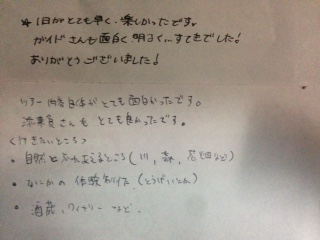 * 1日がとても早く、楽しかったです。
ガイドさんも面白く明るく…すてきでした!
ありがとうございました!
ツアー内容自体がとても面白かったです。
添乗員さんもとても良かったです。
<行きたいところ>
• 自然とふれあえるところ(川、森、など)
• なにかの体験
• 酒蔵、ワイナリーなど、